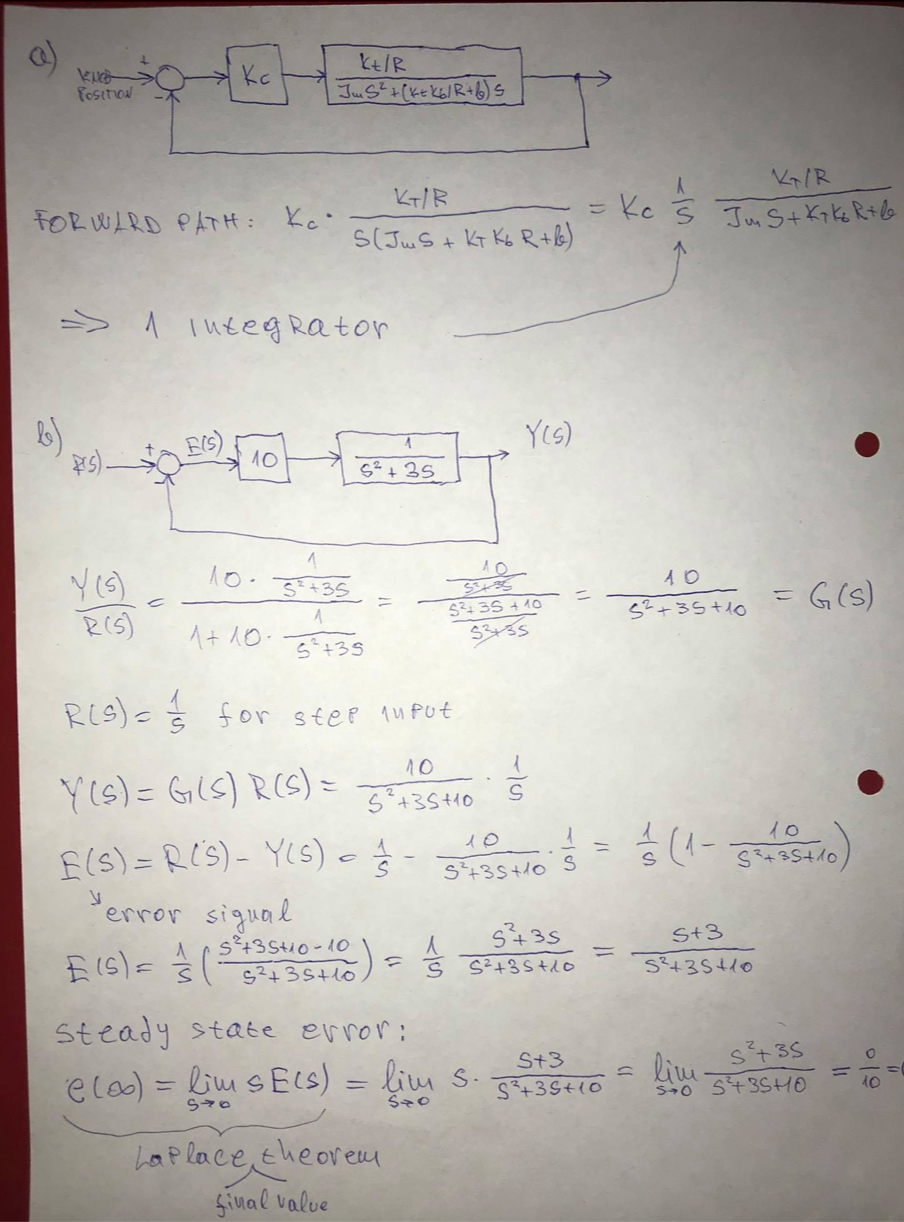 a)
KNOB POSITION + - Kc (Kt/R)/(JmS²+(KtKb/R+b)S)
FORWARD PATH: Kc · (KT/R)/(S(JmS + KT Kb R+b)) = Kc 1/S (KT/R)/(JmS+KTKb R+b)
=> 1 integrator
b)
R(S) + - E(S) 10 1/(S²+3S) Y(S)
Y(S)/R(S) = (10 · 1/(S²+3S))/(1+10 · 1/(S²+3S)) = (10/(S²+3S))/((S²+3S+10)/(S²+3S)) = 10/(S²+3S+10) = G(S)
R(S) = 1/S for step input
Y(S) = G(S) R(S) = 10/(S²+3S+10) · 1/S
E(S) = R(S) - Y(S) = 1/S - 10/(S²+3S+10) · 1/S = 1/S (1 - 10/(S²+3S+10))
error signal
E(S) = 1/S ((S²+3S+10-10)/(S²+3S+10)) = 1/S (S²+3S)/(S²+3S+10) = (S+3)/(S²+3S+10)
steady state error:
e(∞) = lim S→0 S E(S) = lim S→0 S · (S+3)/(S²+3S+10) = lim S→0 (S²+3S)/(S²+3S+10) = 0/10 =
Laplace theorem
final value